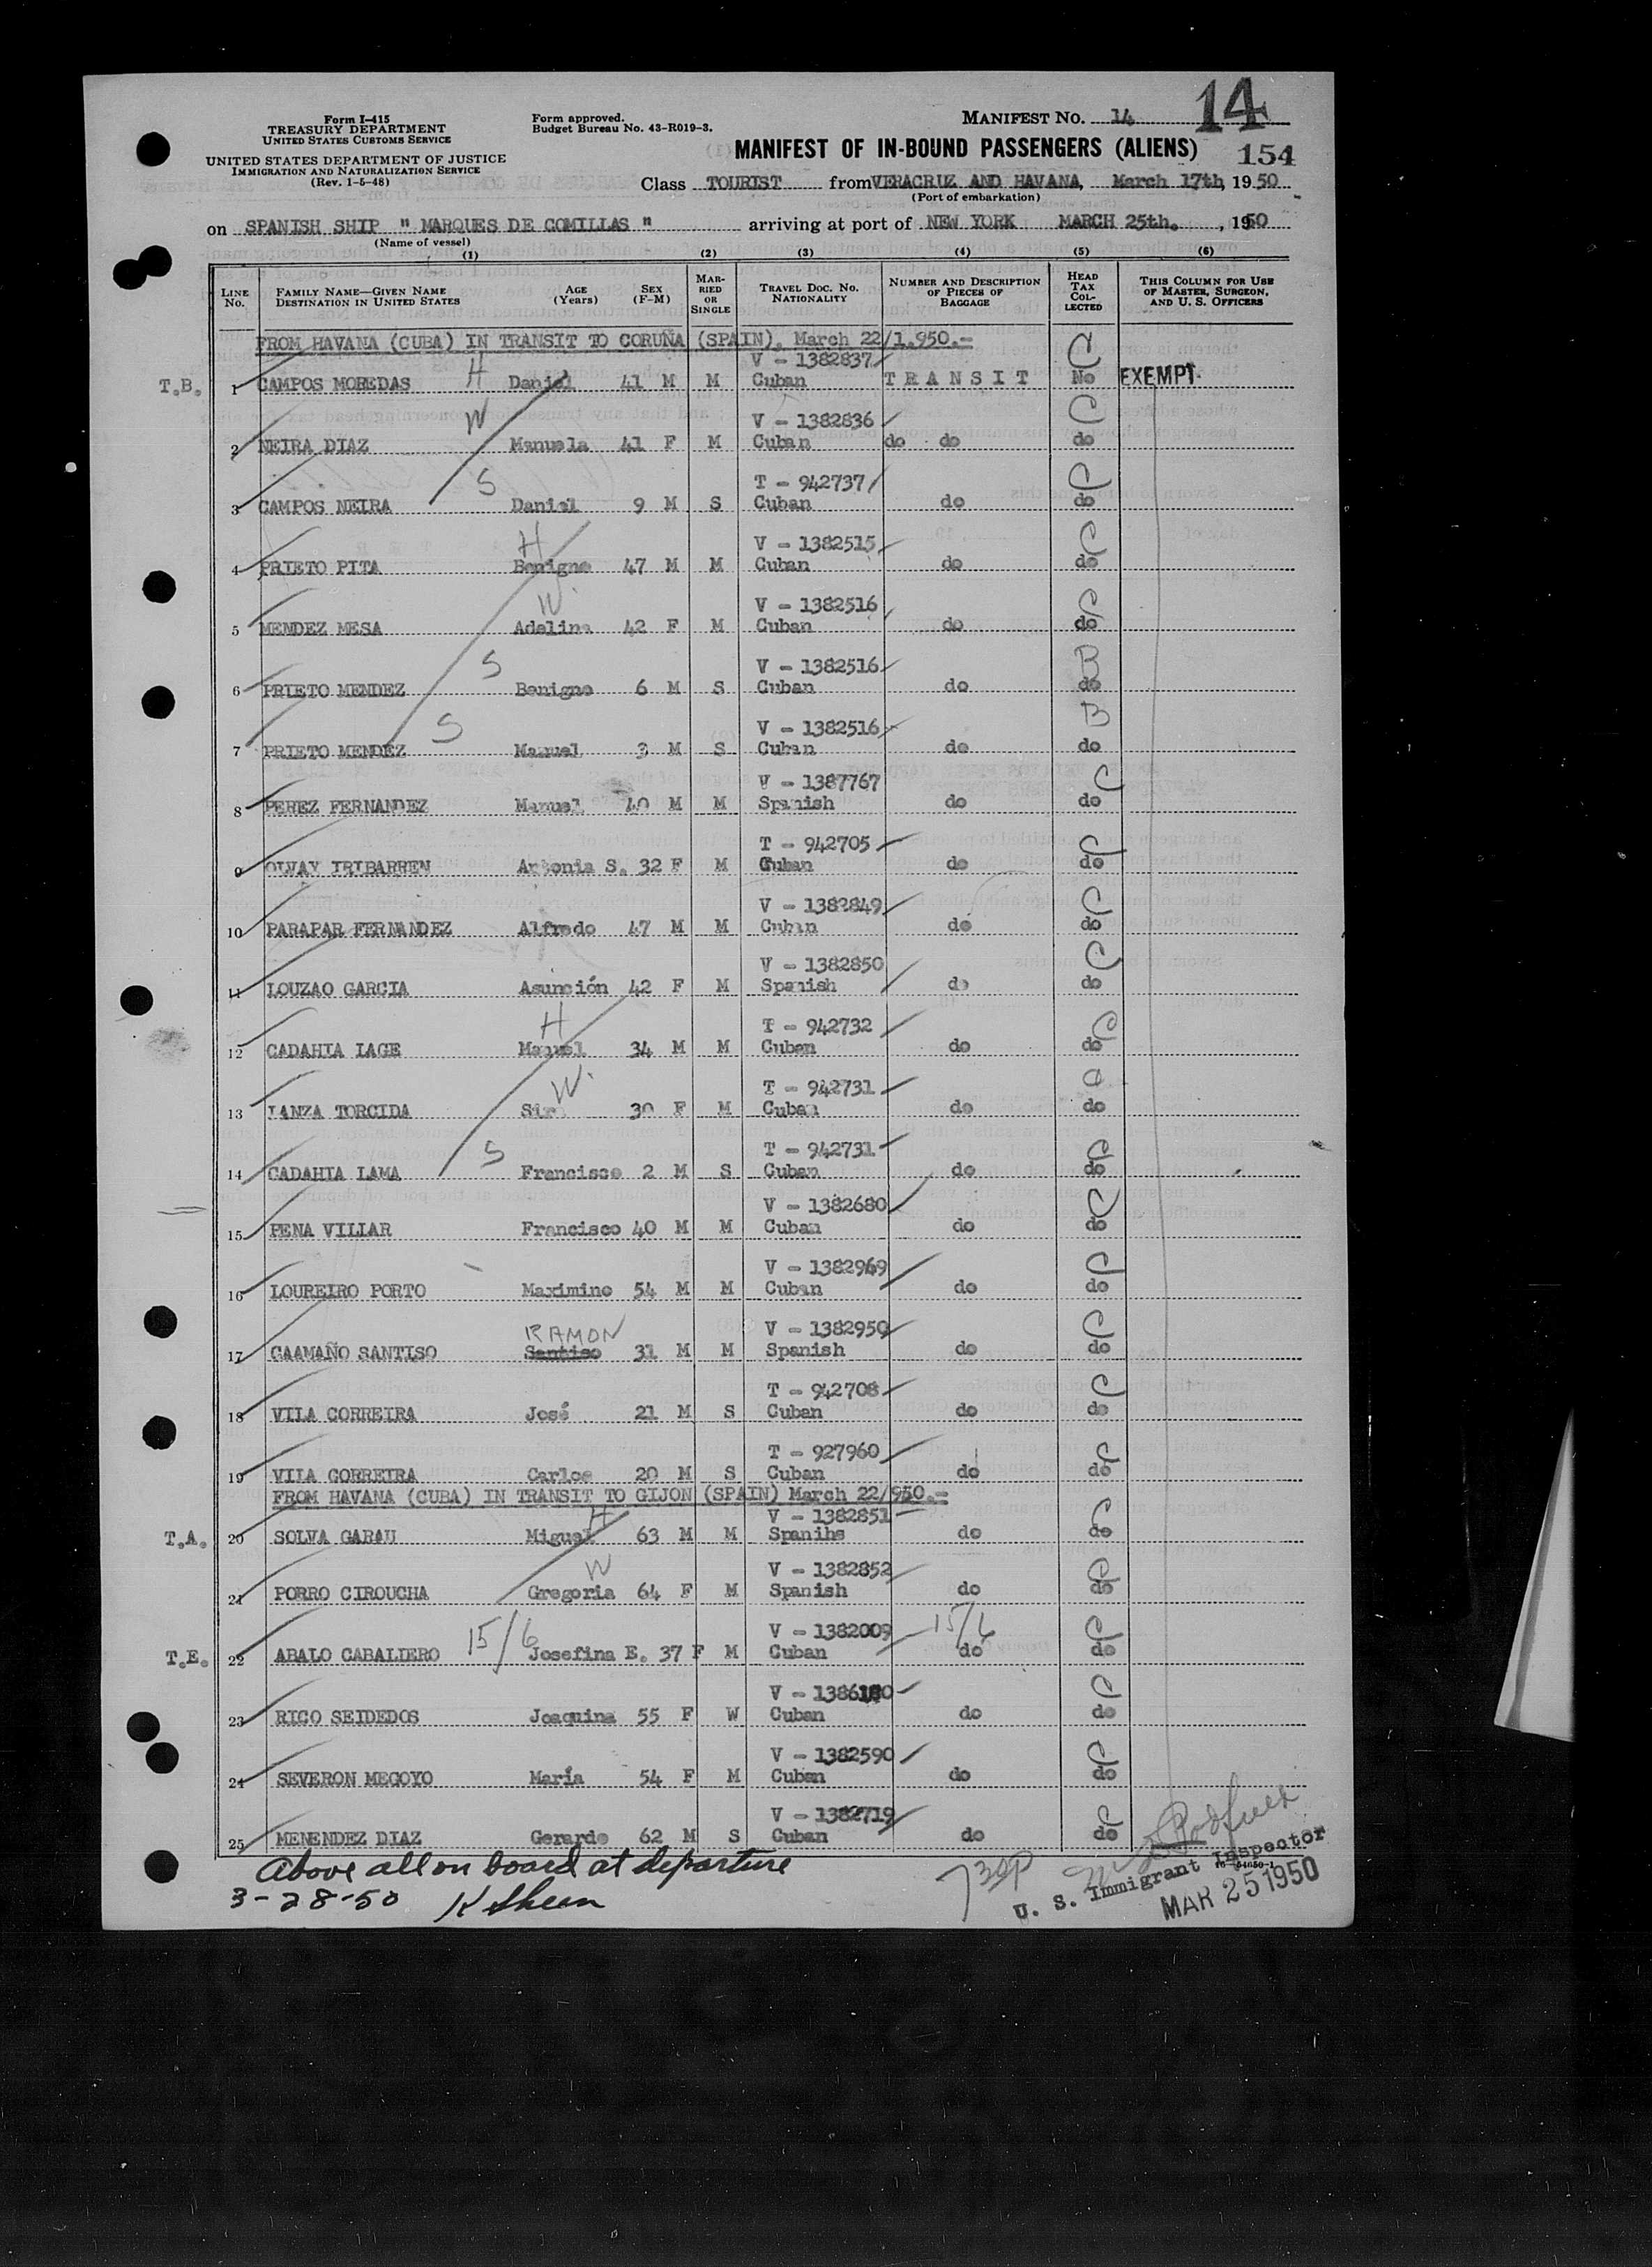 Form I-415
TREASURY DEPARTMENT
UNITED STATES CUSTOMS SERVICE
UNITED STATES DEPARTMENT OF JUSTICE
IMMIGRATION AND NATURALIZATION SERVICE
(Rev. 1-5-48)
Form approved.
Budget Bureau No. 43-R019-3.
MANIFEST NO. 14
14
MANIFEST OF IN-BOUND PASSENGERS (ALIENS)
154
Class TOURIST from VERACRUZ AND HAVANA, March 17th, 1950
(Port of embarkation)
on SPANISH SHIP "MARQUES DE COMILLAS" arriving at port of NEW YORK MARCH 25th., 1950
(Name of vessel)
(1) (2) (3) (4) (5) (6)
LINE NO. FAMILY NAME—GIVEN NAME DESTINATION IN UNITED STATES AGE (Years) SEX (F-M) MARRIED OR SINGLE TRAVEL DOC. NO. NATIONALITY NUMBER AND DESCRIPTION OF PIECES OF BAGGAGE HEAD TAX COLLECTED THIS COLUMN FOR USE OF MASTER, SURGEON, AND U. S. OFFICERS
FROM HAVANA (CUBA) IN TRANSIT TO CORUÑA (SPAIN). March 22/1.950.-
V - 1382837 C
T.B. 1 CAMPOS MOREDAS H Daniel 41 M M Cuban TRANSIT No EXEMPT
W V - 1382836 C
2 NEIRA DIAZ Manuela 41 F M Cuban do do do
S T - 942737 C
3 CAMPOS NEIRA Daniel 9 M S Cuban do do
H V - 1382515 C
4 PRIETO PITA Benigno 47 M M Cuban do do
W. V - 1382516 C
5 MENDEZ MESA Adelina 42 F M Cuban do do
S V - 1382516 B
6 PRIETO MENDEZ Benigno 6 M S Cuban do do
S V - 1382516 B
7 PRIETO MENDEZ Manuel 3 M S Cuban do do
V - 1387767 C
8 PEREZ FERNANDEZ Manuel 40 M M Spanish do do
T - 942705 C
9 OLVAY IRIBARREN Antonia S. 32 F M Cuban do do
V - 1382849 C
10 PARAPAR FERNANDEZ Alfredo 47 M M Cuban do do
V - 1382850 C
11 LOUZAO GARCIA Asunción 42 F M Spanish do do
H T - 942732 C
12 CADAHIA LAGE Manuel 34 M M Cuban do do
W. T - 942731 C
13 LANZA TORCIDA Sira 30 F M Cuban do do
S T - 942731 C
14 CADAHIA LAMA Francisco 2 M S Cuban do do
V - 1382680 C
15 PENA VILIAR Francisco 40 M M Cuban do do
V - 1382969 C
16 LOUREIRO PORTO Maximino 54 M M Cuban do do
RAMON V - 1382950 C
17 CAAMAÑO SANTISO Santiso 31 M M Spanish do do
T - 942708 C
18 VILA CORREIRA José 21 M S Cuban do do
T - 927960 C
19 VILA CORREIRA Carlos 20 M S Cuban do do
FROM HAVANA (CUBA) IN TRANSIT TO GIJON (SPAIN) March 22/950.-
H V - 1382851 C
T.A. 20 SOLVA GARAU Miguel 63 M M Spanihs do do
W V - 1382852 C
21 PORRO CIROUCHA Gregoria 64 F M Spanish do do
15/6 V - 1382009 15/6 C
T.E. 22 ABALO CABALIERO Josefina E. 37 F M Cuban do do
V - 1386180 C
23 RICO SEIDEDOS Joaquina 55 F W Cuban do do
V - 1382590 C
24 SEVERON MEGOYO María 54 F M Cuban do do
V - 1382719 C
25 MENENDEZ DIAZ Gerardo 62 M S Cuban do do
Above all on board at departure
3-28-50 K Sheen
730P
U. S. Immigrant Inspector
MAR 25 1950